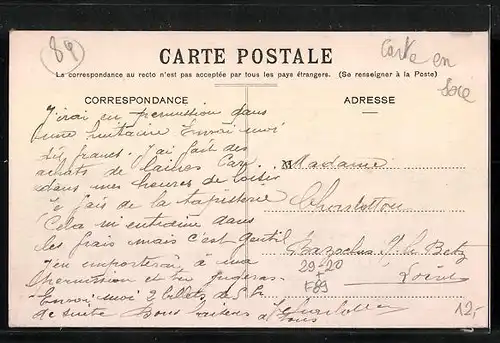 89
Carte en
Soie
CARTE POSTALE
La correspondance au recto n'est pas acceptée par tous les pays étrangers. (Se renseigner à la Poste)
CORRESPONDANCE
J'irai en permission dans
une huitaine Envoi moi
dix francs. J'ai fait des
achats de laines Car
dans mes heures de loisir
je fais de la tapisserie
Cela m'entraine dans
les frais mais c'est gentil
J'en emporterai à ma
permission et tu jugeras.
Envoi moi 2 billets de 5 fr
de suite Bons baisers à
tous
ADRESSE
M Madame
Charlotton
Loiret
29-20
F89
12,-